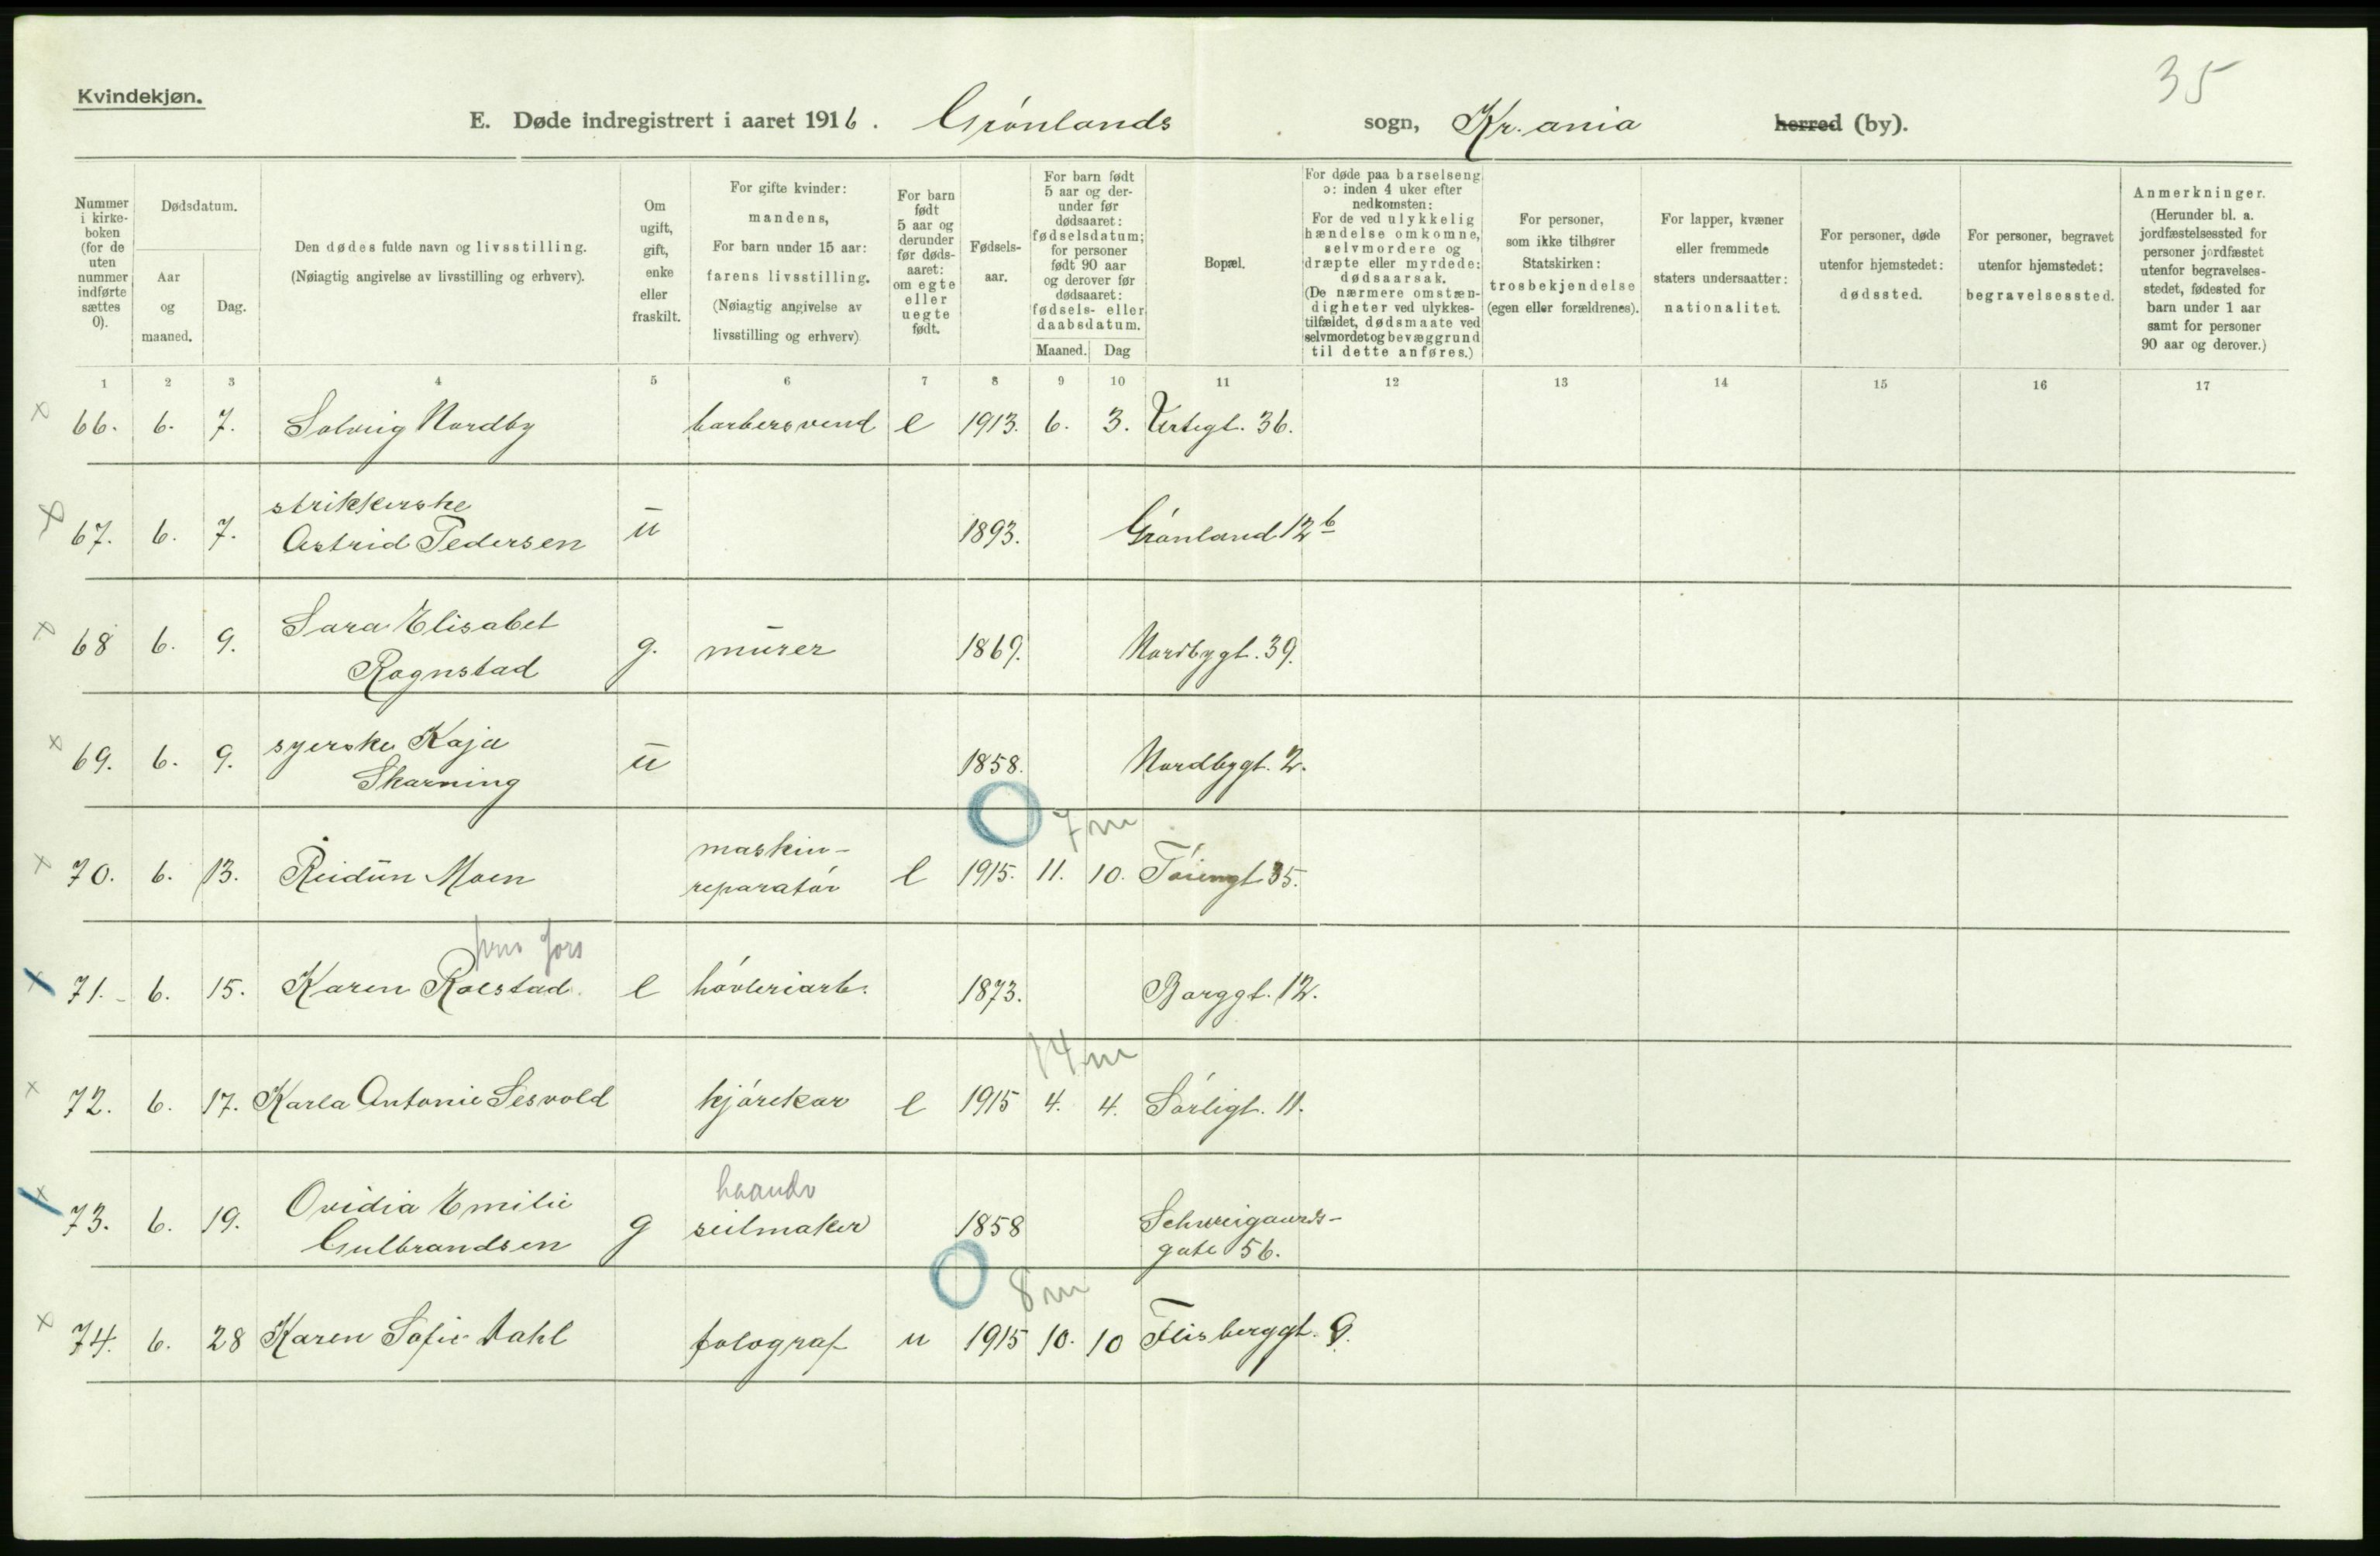 35
Kvindekjøn.
E. Døde indregistrert i aaret 1916. Grønlands sogn, Kr.ania herred (by).
Nummer i kirkeboken (for de uten nummer indførte sættes 0).
Dødsdatum.
Aar og maaned.
Dag.
Den dødes fulde navn og livsstilling.
(Nøiagtig angivelse av livsstilling og erhverv).
Om ugift, gift, enke eller fraskilt.
For gifte kvinder: mandens,
For barn under 15 aar: farens livsstilling.
(Nøiagtig angivelse av livsstilling og erhverv)
For barn født 5 aar og derunder før dødsaaret: om egte eller uegte født.
Fødselsaar.
For barn født 5 aar og derunder før dødsaaret: fødselsdatum; for personer født 90 aar og derover før dødsaaret: fødsels- eller daabsdatum.
Maaned. Dag
Bopæl.
For døde paa barselseng ɔ: inden 4 uker efter nedkomsten: For de ved ulykkelig hændelse omkomne, selvmordere og dræpte eller myrdede: dødsaarsak. (De nærmere omstændigheter ved ulykkestilfældet, dødsmaate ved selvmordet og bevæggrund til dette anføres.)
For personer, som ikke tilhører Statskirken: trosbekjendelse (egen eller forældrenes).
For lapper, kvæner eller fremmede staters undersaatter: nationalitet.
For personer, døde utenfor hjemstedet: dødssted.
For personer, begravet utenfor hjemstedet: begravelsessted.
Anmerkninger.
(Herunder bl. a. jordfæstelsessted for personer jordfæstet utenfor begravelsesstedet, fødested for barn under 1 aar samt for personer 90 aar og derover.)
1 2 3 4 5 6 7 8 9 10 11 12 13 14 15 16 17
x 66. 6. 7. Solveig Nordby barbersvend e 1913. 6. 3. Urtegt. 36.
x 67. 6. 7. strikkerske
Astrid Pedersen u 1893. Grønland 12b
x 68 6. 9. Sara Elisabet
Rognstad g. murer 1869. Nordbygt. 39.
x 69. 6. 9. syerske Kaja
Skarning u 1858. Nordbygt. 2.
7 m
x 70. 6. 13. Reidun Moen maskin-
reparatør e 1915. 11. 10. Tøiengt 35.
priv fors
x 71. 6. 15. Karen Rolstad. e høvleriarb. 1873. Borggt. 12.
14 m
x 72. 6. 17. Karla Antonie Sesvold kjørekar e 1915 4. 4. Sørligt. 11.
haandv
x 73. 6. 19. Ovidia Emilie
Gulbrandsen g seilmaker 1858 Schweigaards-
gate 56.
8 m
x 74. 6. 28 Karen Sofie Dahl fotograf u 1915 10. 10 Flisberggt. 9.